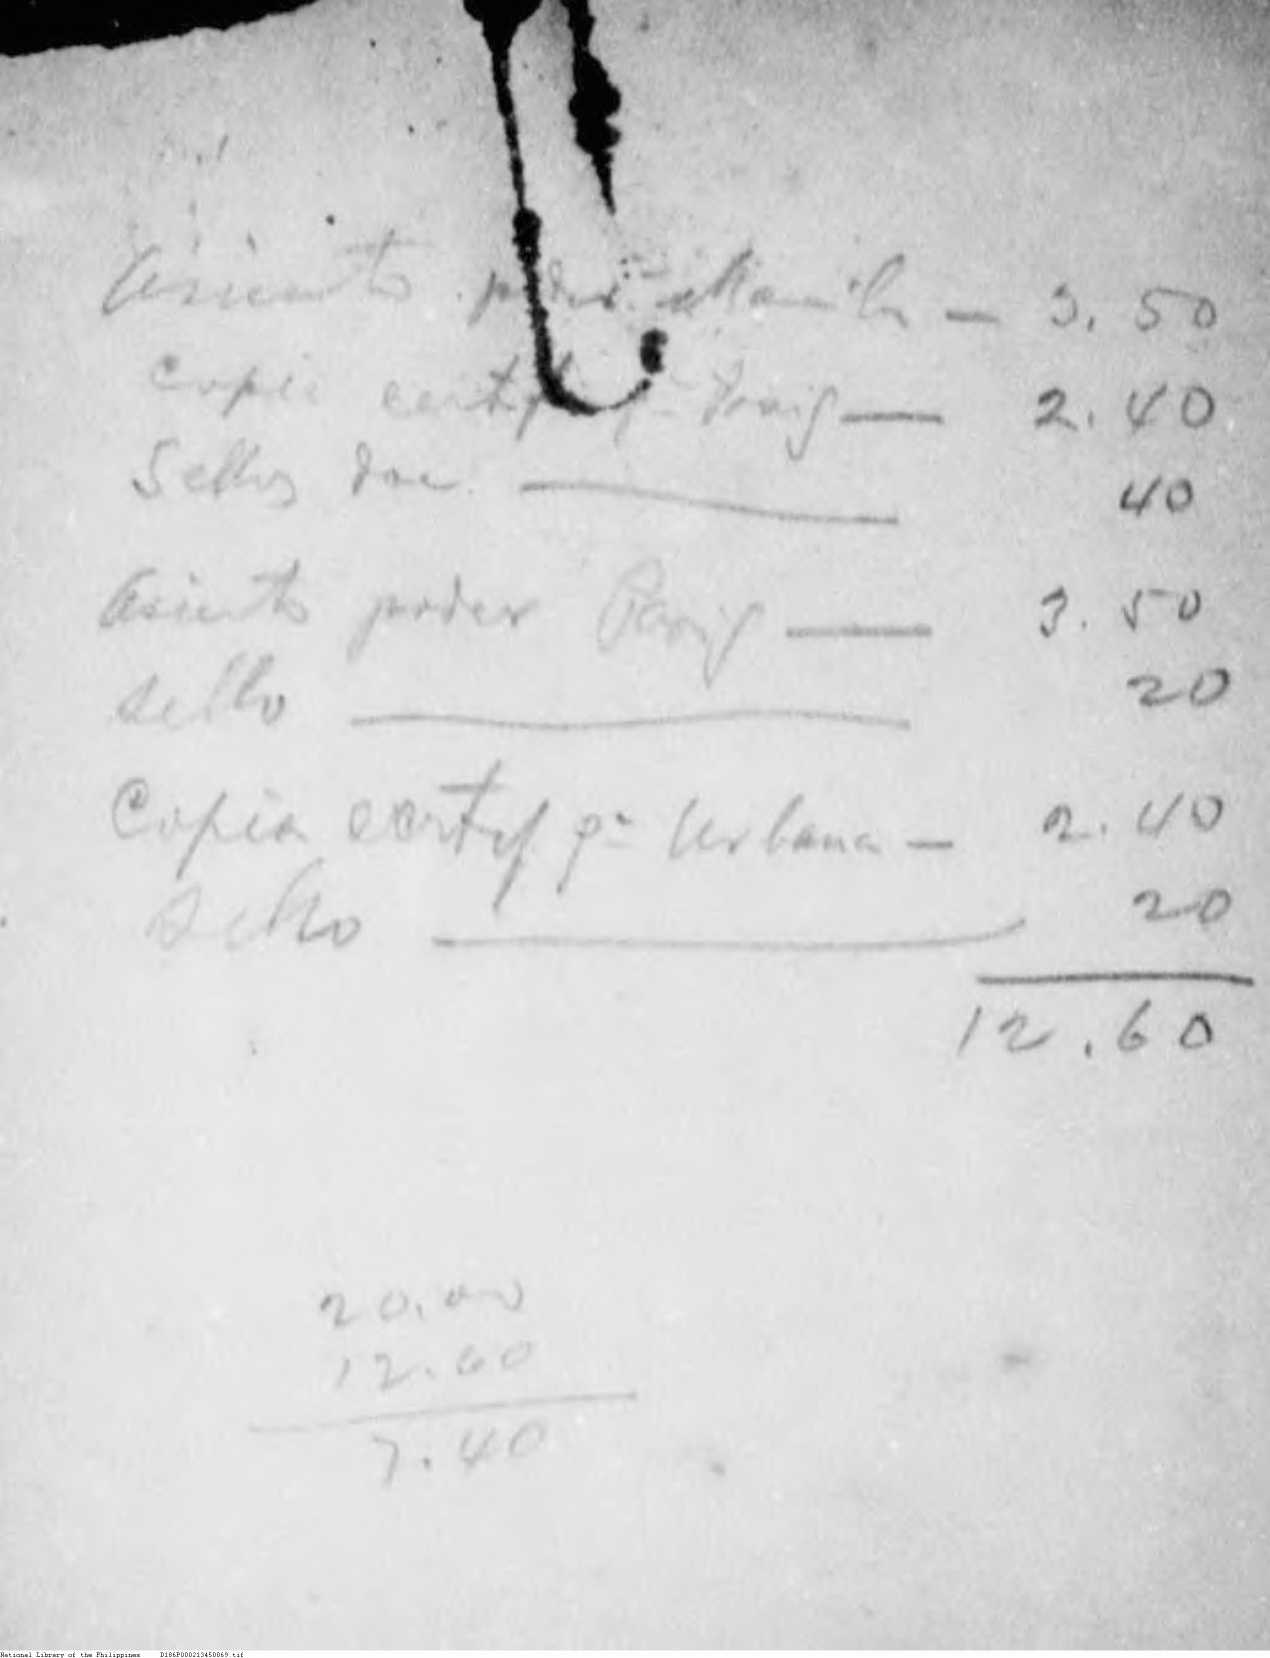 Asiento poder Manila — 3.50
Copia certif pª Pasig — 2.40
Sellos doc. — 40
Asiento poder Pasig — 3.50
sello — 20
Copia certif pª Urbana — 2.40
sello — 20
12.60
20.00
12.60
7.40
National Library of the Philippines D186P000213450069.tif